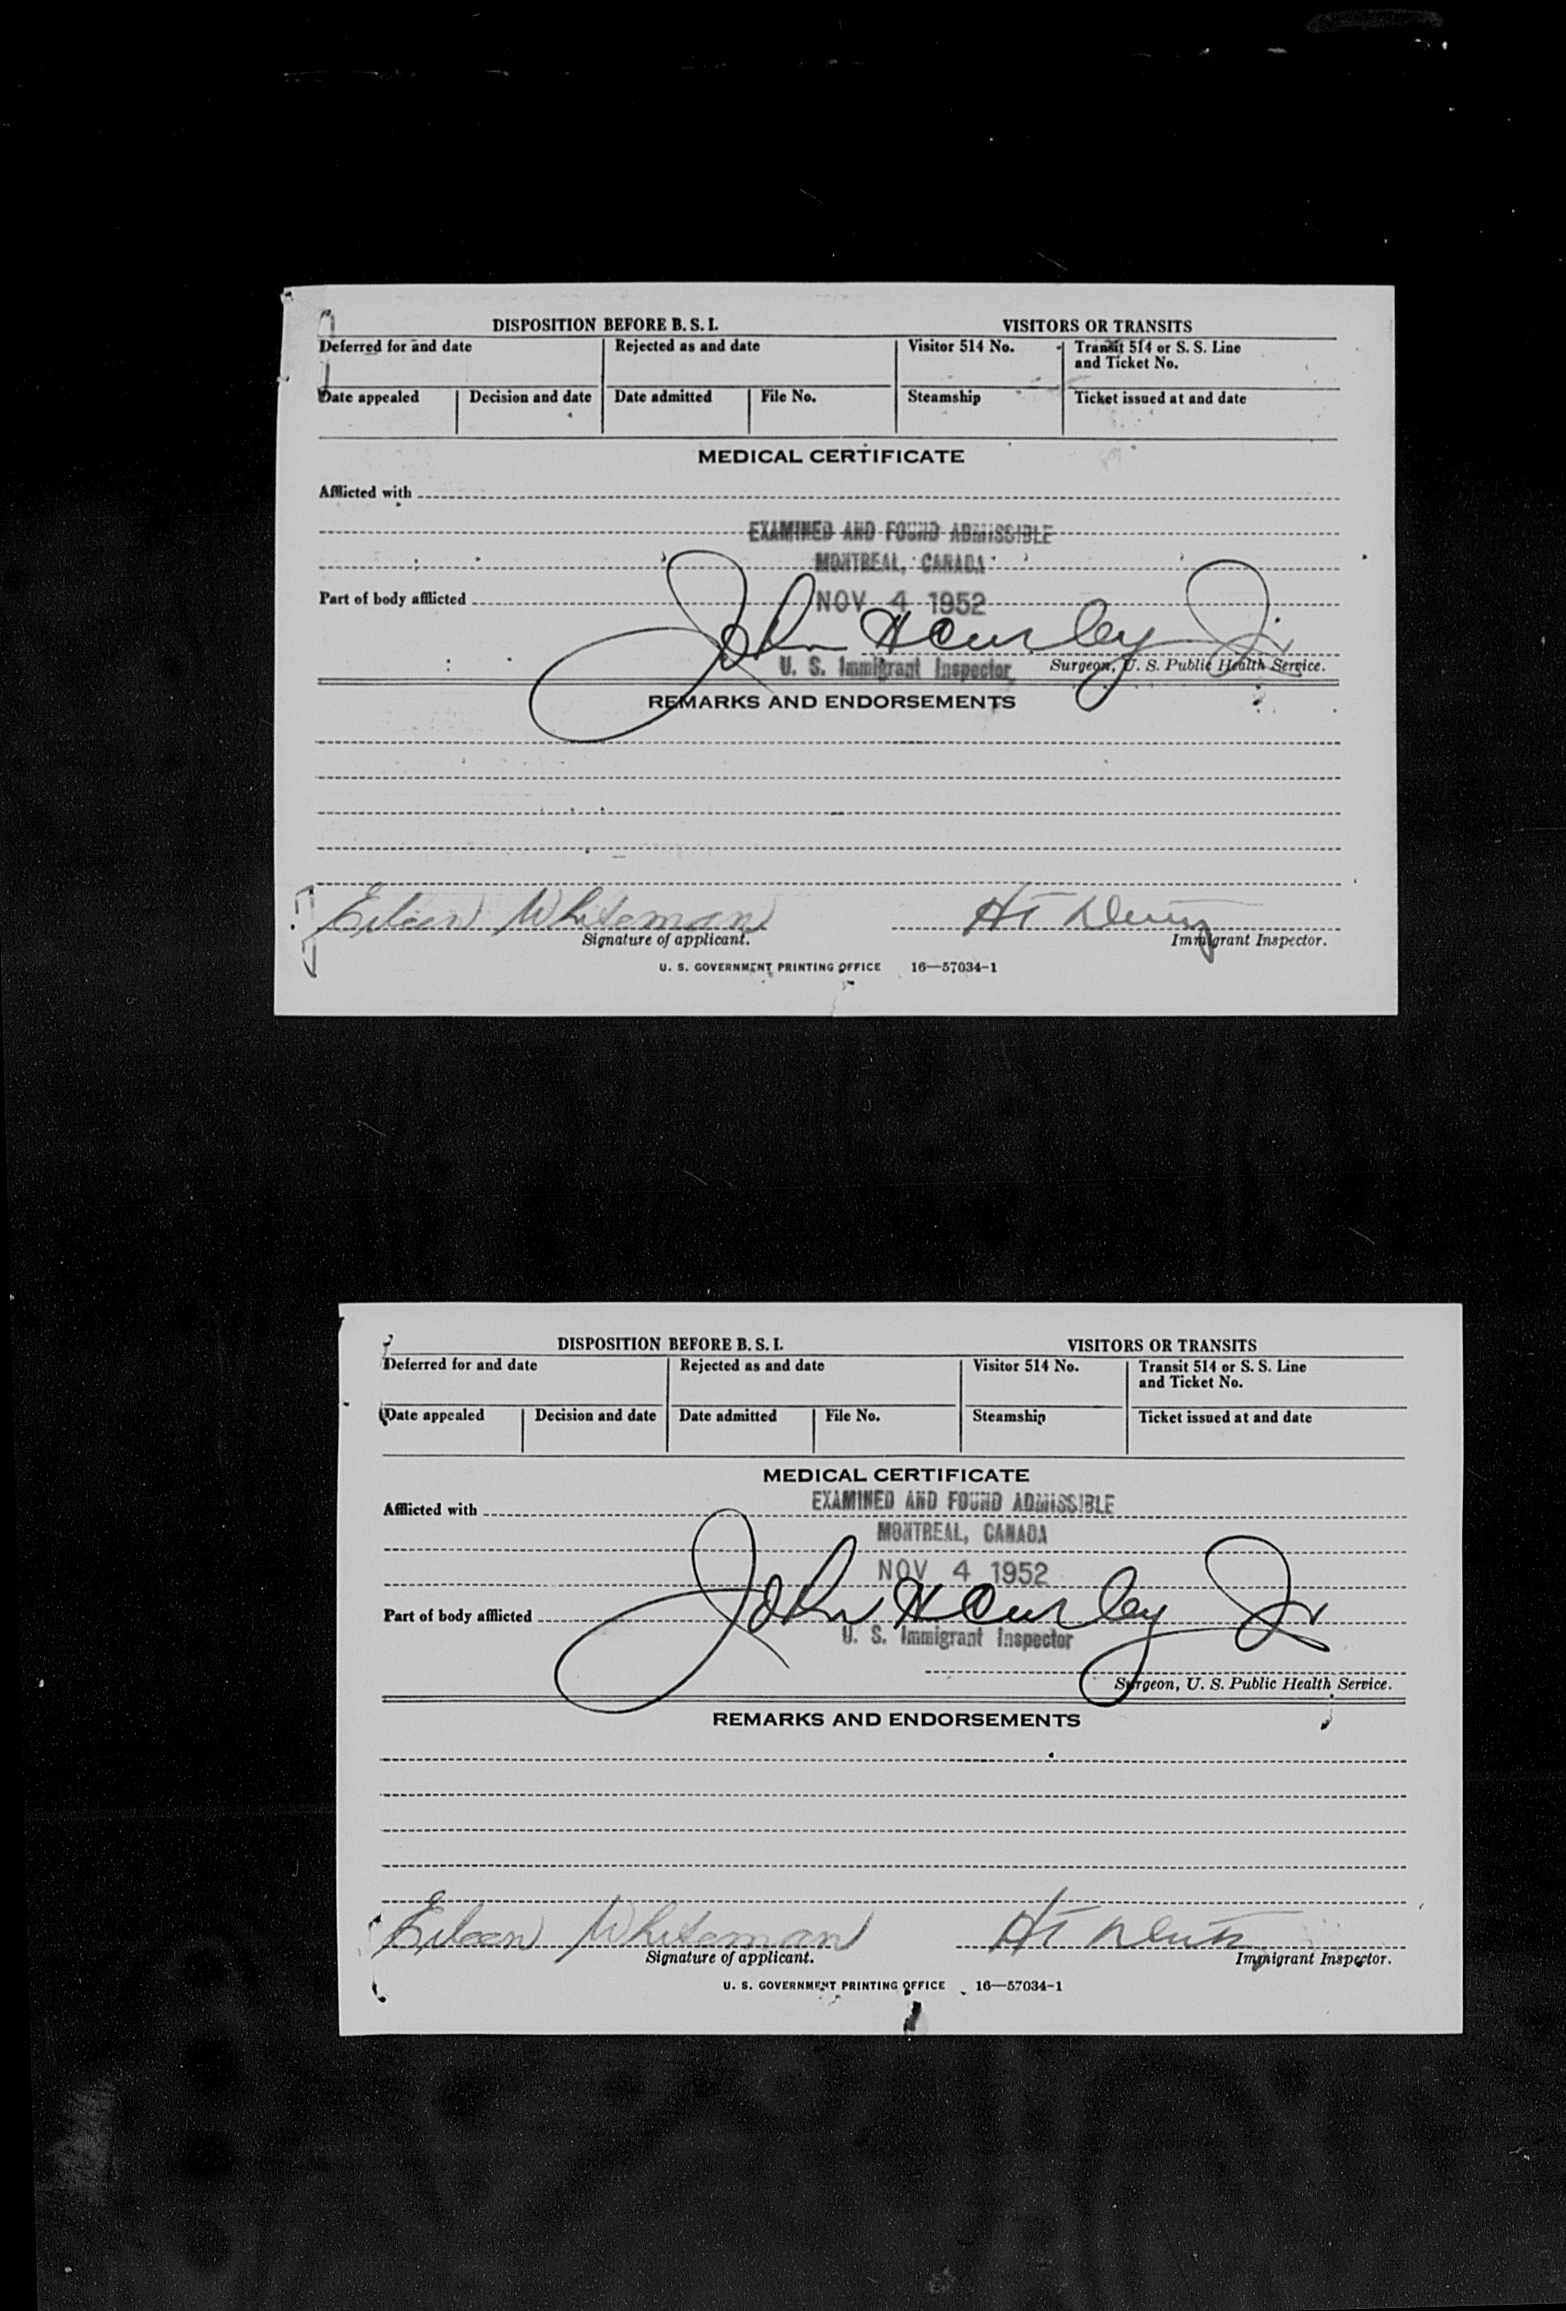 DISPOSITION BEFORE B. S. I. VISITORS OR TRANSITS
Deferred for and date Rejected as and date Visitor 514 No. Transit 514 or S. S. Line
and Ticket No.
Date appealed Decision and date Date admitted File No. Steamship Ticket issued at and date
MEDICAL CERTIFICATE
Afflicted with
EXAMINED AND FOUND ADMISSIBLE
MONTREAL, CANADA
Part of body afflicted NOV 4 1952
John Hourley Jr
U. S. Immigrant Inspector Surgeon, U. S. Public Health Service.
REMARKS AND ENDORSEMENTS
Eileen Whiteman HT
Signature of applicant. Immigrant Inspector.
U. S. GOVERNMENT PRINTING OFFICE 16—57034-1
DISPOSITION BEFORE B. S. I. VISITORS OR TRANSITS
Deferred for and date Rejected as and date Visitor 514 No. Transit 514 or S. S. Line
and Ticket No.
Date appealed Decision and date Date admitted File No. Steamship Ticket issued at and date
MEDICAL CERTIFICATE
EXAMINED AND FOUND ADMISSIBLE
Afflicted with
MONTREAL, CANADA
NOV 4 1952
John Hourley Jr
Part of body afflicted
U. S. Immigrant Inspector
Surgeon, U. S. Public Health Service.
REMARKS AND ENDORSEMENTS
Eileen Whiteman HT
Signature of applicant. Immigrant Inspector.
U. S. GOVERNMENT PRINTING OFFICE 16—57034-1